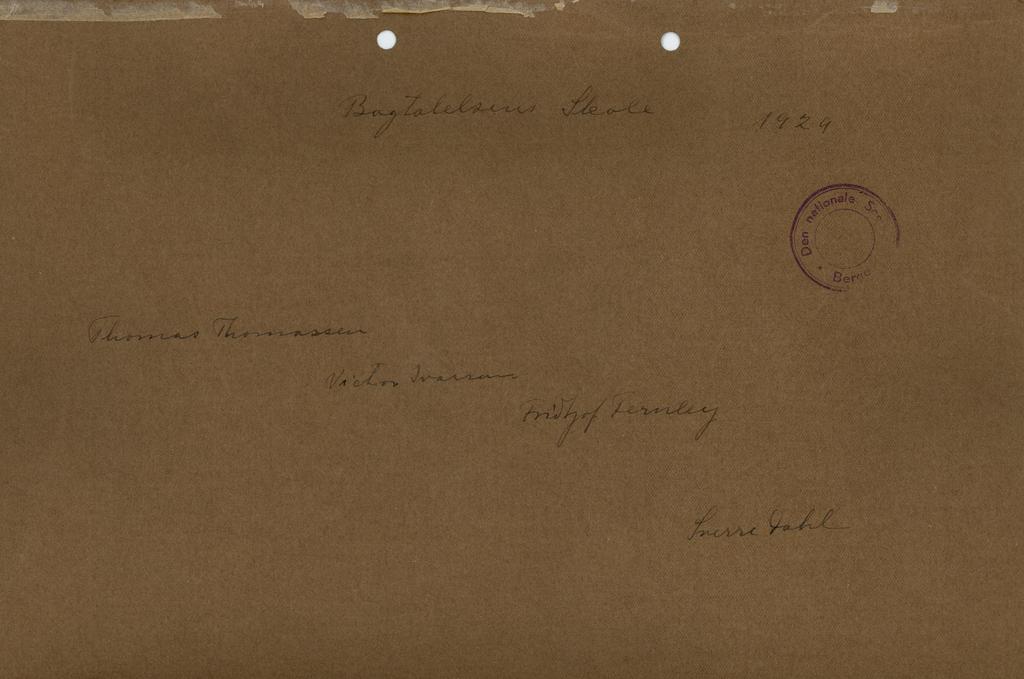 Bagtalelsens Skole 1929
Den nationale Sc
Berge
Thomas Thomassen
Victor Ivarson
Fridtjof Fernley
Sverre Dahl